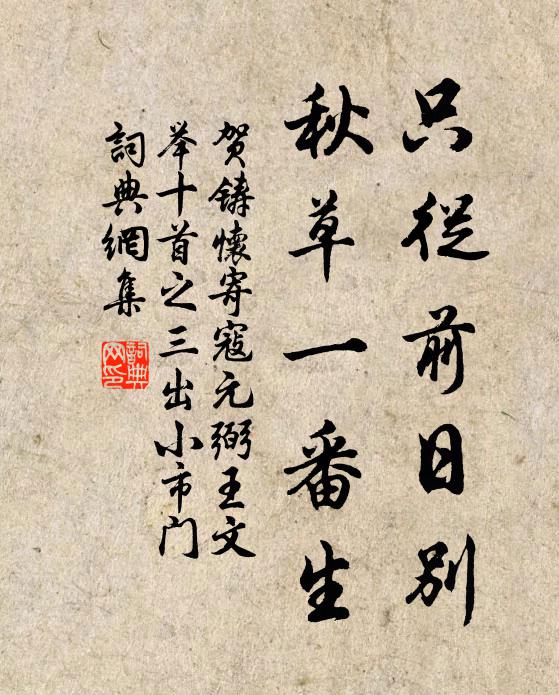 只從前日別
秋草一番生
贺鑄懷寄寇元弼王文
举十首之三出小市门
詞典網集
詞典
网印